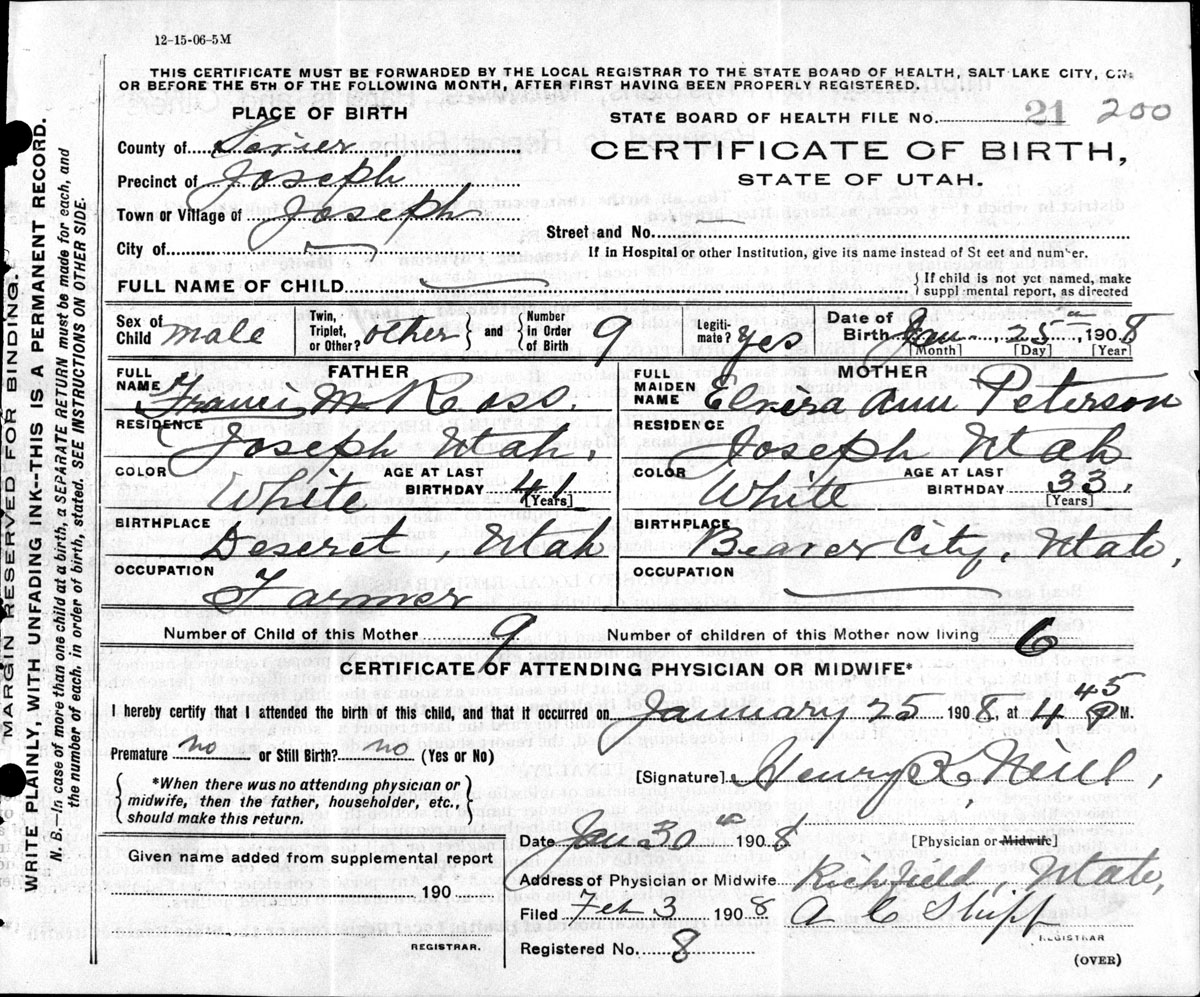 12-15-06-5M
THIS CERTIFICATE MUST BE FORWARDED BY THE LOCAL REGISTRAR TO THE STATE BOARD OF HEALTH, SALT LAKE CITY, ON
OR BEFORE THE 5TH OF THE FOLLOWING MONTH, AFTER FIRST HAVING BEEN PROPERLY REGISTERED.
PLACE OF BIRTH
STATE BOARD OF HEALTH FILE No. 21 200
County of Sevier
CERTIFICATE OF BIRTH,
Precinct of Joseph
STATE OF UTAH.
Town or Village of Joseph
Street and No. —
City of —
If in Hospital or other Institution, give its name instead of St eet and number.
FULL NAME OF CHILD —
{ If child is not yet named, make
suppl mental report, as directed
Sex of Child male
Twin, Triplet, or Other? other } and { Number in Order of Birth 9
Legiti-mate? yes
Date of Birth Jan 25th 1908
[Month] [Day] [Year]
FATHER
MOTHER
FULL NAME Francis M Ross.
FULL MAIDEN NAME Elvira Ann Peterson
RESIDENCE Joseph Utah.
RESIDENCE Joseph Utah
COLOR White AGE AT LAST BIRTHDAY 41 [Years]
COLOR White AGE AT LAST BIRTHDAY 33. [Years]
BIRTHPLACE Deseret, Utah
BIRTHPLACE Beaver City, Utah,
OCCUPATION Farmer
OCCUPATION —
Number of Child of this Mother 9 Number of children of this Mother now living 6
CERTIFICATE OF ATTENDING PHYSICIAN OR MIDWIFE*
I hereby certify that I attended the birth of this child, and that it occurred on January 25 1908, at 4 45 P M.
Premature no or Still Birth? no (Yes or No)
[Signature] Henry K. Neill,
{ *When there was no attending physician or
midwife, then the father, householder, etc.,
should make this return. }
Date Jan 30th 1908 [Physician or Midwife]
Given name added from supplemental report
190
Address of Physician or Midwife Richfield, Utah,
Filed Feb 3 1908 A C Shipp
REGISTRAR.
REGISTRAR
Registered No. 8
(OVER)
MARGIN RESERVED FOR BINDING.
WRITE PLAINLY, WITH UNFADING INK--THIS IS A PERMANENT RECORD.
N. B.—In case of more than one child at a birth, a SEPARATE RETURN must be made for each, and
the number of each, in order of birth, stated. SEE INSTRUCTIONS ON OTHER SIDE.